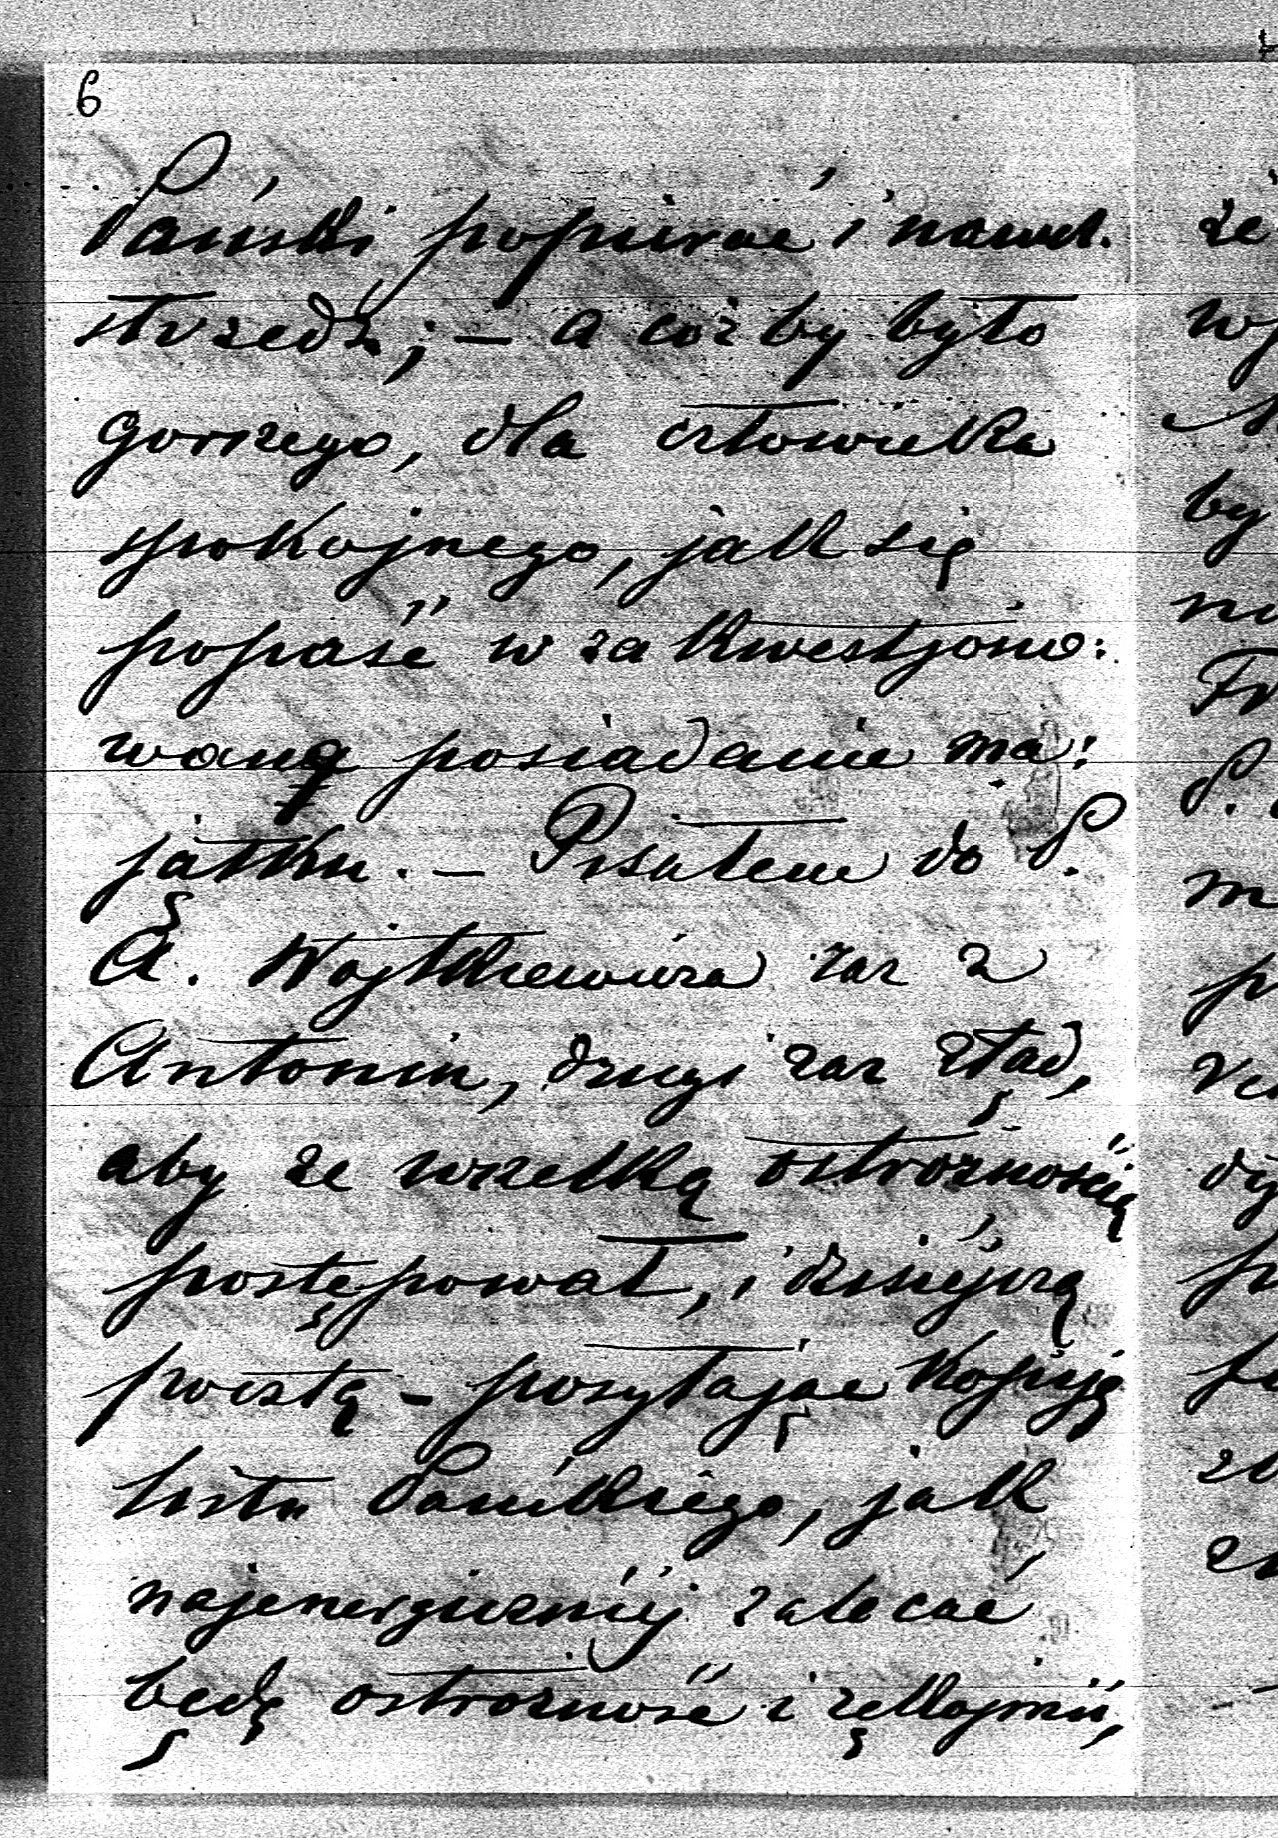 6
Pański popierać i nawet
strzedz; — a cóż by było
gorszego, dla człowieka
spokojnego, jak się
popaść w zakwestjono:
waną posiadanie ma:
jątku. — Pisałem do P.
A. Wojtkiewicza raz z
Antonin, drugi raz ztąd,
aby ze wszelką ostrożnością
postępował, i dzisiejszą
pocztą — posyłając kopiję
listu Pańskiego, jak
najenergiczniéj zalecać
będę ostrożność i
że
by
Fr
P.